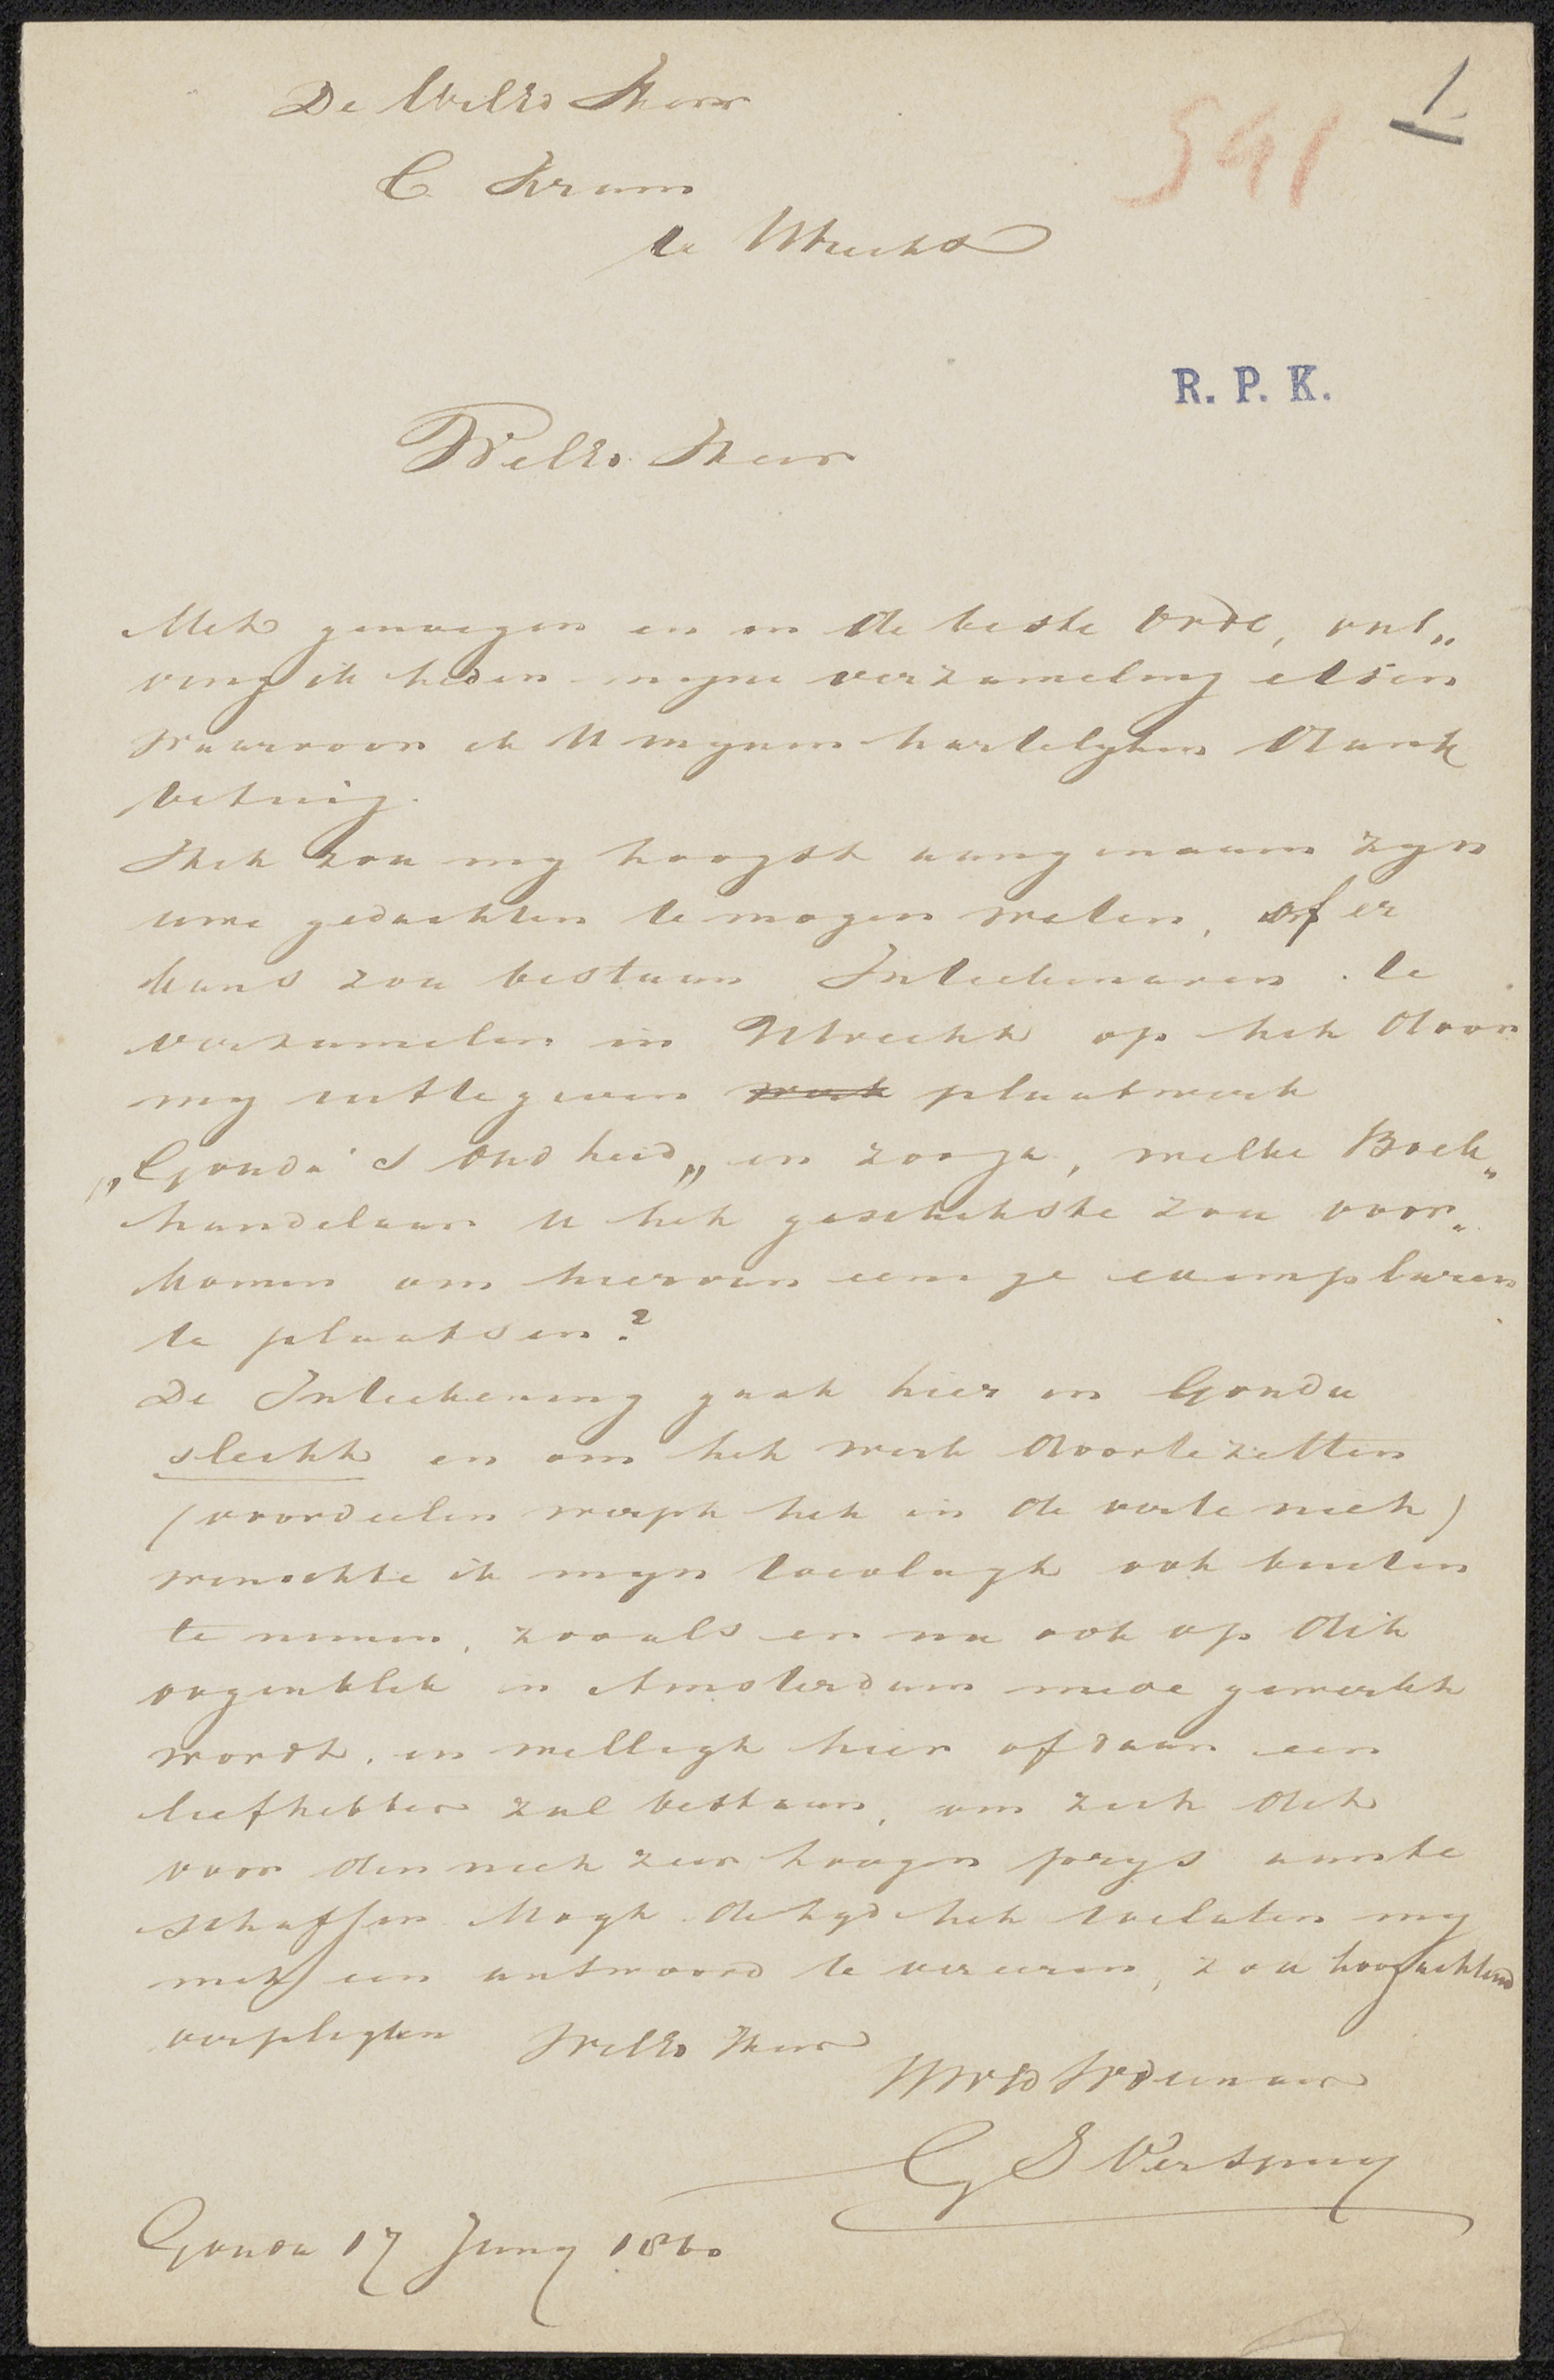 De WelEd Heer
1
541
C. Kram
te Utrecht
R. P. K.
WelEd. Heer
Met genoegen en in de beste orde, ont„
ving ik heden myne verzameling etsen
waarvoor ik U mynen hartelyken dank
betuig.
Het zou my hoogst aangenaam zyn
uwe gedachten te mogen weten, of er
kans zou bestaan Inteekenaren te
verzamelen in Utrecht op het door
my uittegeven werk plaatwerk
„Gouda's Oudheid„ en zoo ja, welke Boek„
handelaar U het geschikste zou voor„
komen om hiervan eenige exemplaren
te plaatsen?
De Inteekening gaat hier in Gouda
slecht en om het werk doortezetten
(voordeelen werpt het in de verte niet)
wenschte ik myn toevlugt ook buiten
te nemen, zooals er nu ook op dit
oogenblik in Amsterdam mede gewerkt
wordt, en welligt hier of daar een
liefhebber zal bestaan, om zich dit
voor den niet zeer hoogen prys aante
schaffen Mogt de tyd het toelaten my
met een antwoord te vereeren, zou hoogachtend
verpligten WelEd Heer
UWEd Dienaar
G J Verspuy
Gouda 17 Juny 1860